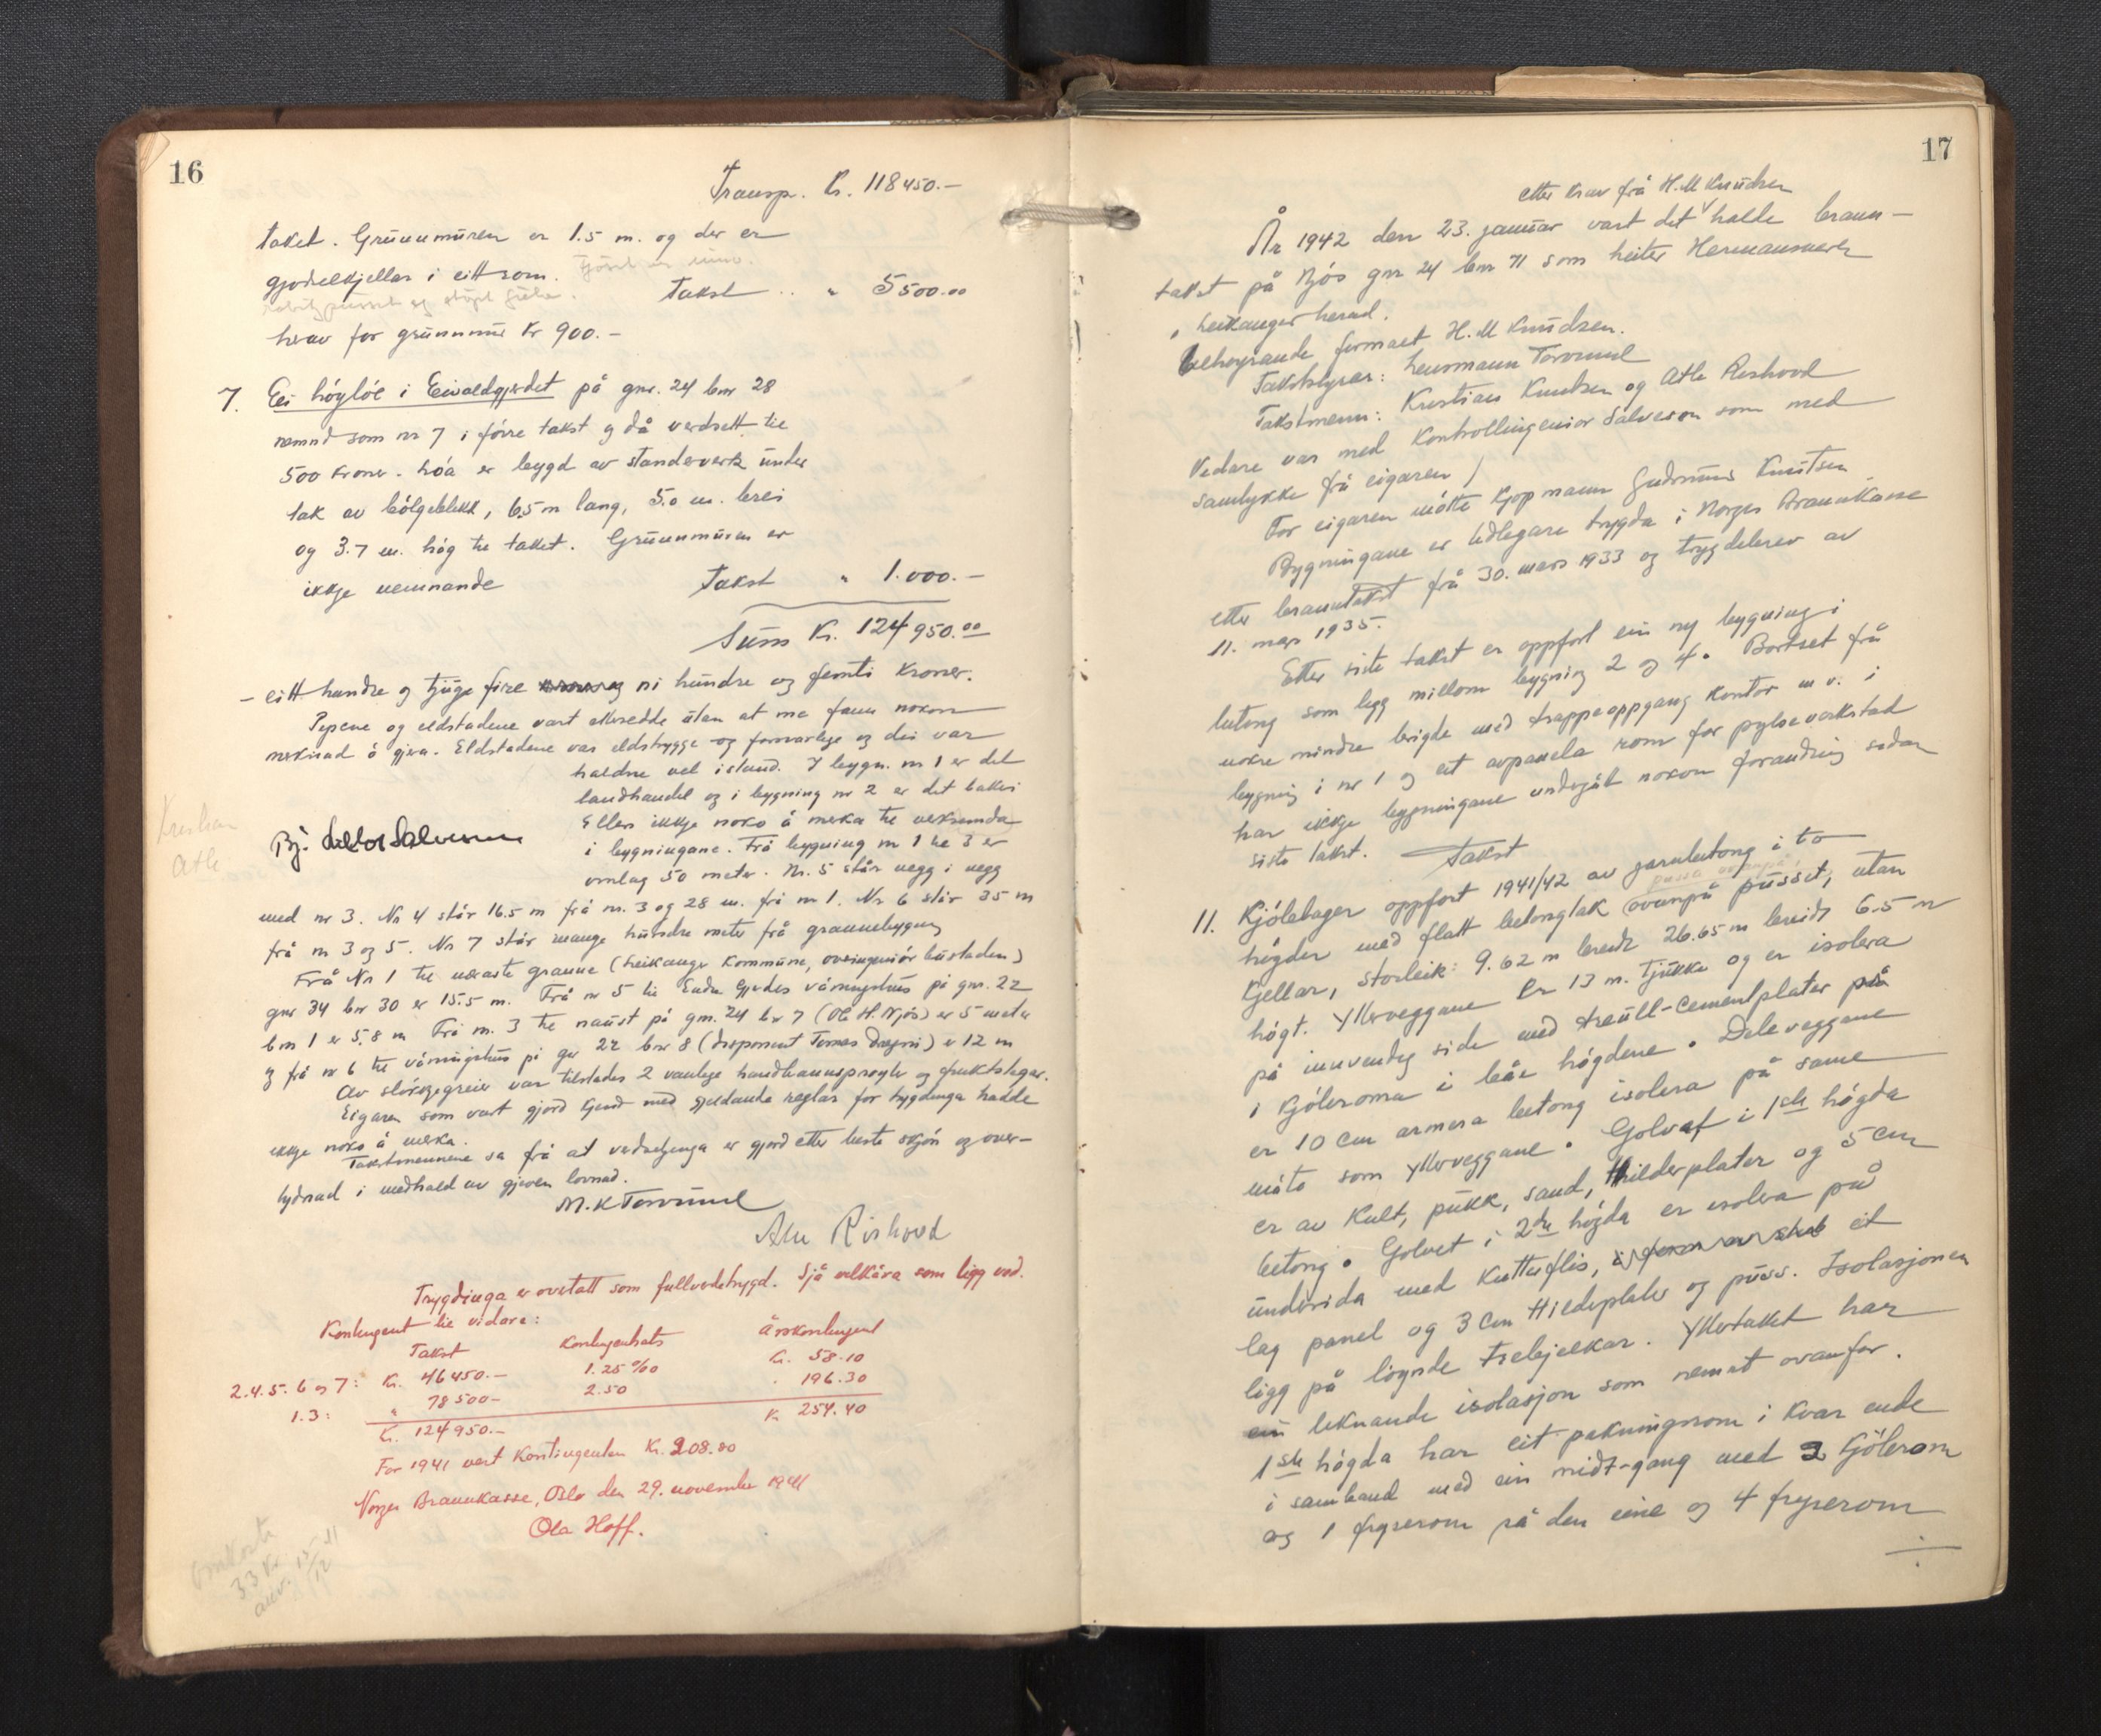 16
Transp. Kr. 118450.-
taket. Grunnmuren er 1.5 m. og der er
gjødelkjellar i eitt rom.
Takst .. " 5500.00
krav for grunnmur kr 900.-
7. Ei høyløe i Eivaldgjerdet på gnr. 24 bnr 28
nemnd som nr 7 i førre takst og då verdsett til
500 kroner. Løa er bygd av standerverk under
tak av bølgeblekk, 6.5 m lang, 5.0 m. brei
og 3.7 m. høg til taket. Grunnmuren er
ikkje nemnande
Takst " 1.000.-
Sum Kr. 124950.00
- eitt hundre og tjuge fire ni hundre og femti kroner.
Pipene og eldstadene vart ettersedde utan at me fann nokon
merknad å gjera. Eldstadene var eldstrygge og forsvarlege og dei var
haldne vel i stand. I bygn. nr 1 er det
landhandel og i bygning nr 2 er det bakeri
Ellers ikkje noko å merka til verksemda
i bygningane. Frå bygning nr 1 til 3 er
omlag 50 meter. Nr. 5 står vegg i vegg
Kristian
Atle
med nr 3. Nr 4 står 16.5 m frå nr. 3 og 28 m. frå nr 1. Nr 6 står 35 m
frå nr 3 og 5. Nr 7 står mange hundre meter frå grannebygning
Frå Nr 1 til næraste granne (Leikanger Kommune, overingeniørbustaden)
gnr 34 bnr 30 er 15.5 m. Frå nr 5 til Endre Gjerdes våningshus på gnr. 22
bnr 1 er 5.8 m Frå nr. 3 til naust på gnr. 24 bnr 7 (Ole H. Njøs) er 5 meter
og frå nr 6 til våningshus på gnr 22 bnr 8 (disponent Tomas Dregni) er 12 m
Av sløkkjegreier var tilstades 2 vanlege handbrannsprøyter og fruktsteger.
Eigaren som vart gjord kjend med gjeldande reglar for trygdinga hadde
ikkje noko å merka.
Takstmennene sa frå at verdsetjinga er gjord etter beste skjøn og over-
tydnad i medhald av gjeven lovnad.
M. K Torvund
Atle Rishovd
Trygdinga er overtatt som fullverdetrygd. Sjå vilkåra som ligg ved.
Kontingent til vidare:
Takst Kontingentsats Årskontingent
2.4.5.6 og 7: Kr. 46450.- 1.25 ‰ Kr. 58.10
1.3: " 78500- 2.50 " 196.30
Kr. 124950.- Kr 254.40
For 1941 vert Kontingenten Kr. 208.80
Norges Brannkasse, Oslo den 29. november 1941
Ola Hoff.
33 Kr.
17
etter krav frå H.M Knudsen
År 1942 den 23. januar vart det halde brann-
takst på Njøs gnr 24 bnr 71 som heiter Hermansverk
i Leikanger herad.
Tilhøyrande firmaet H.M Knudsen.
Takststyrar: Lensmann Torvund
Takstmenn: Kristian Knutsen og Atle Rishovd
Vedare var med Kontrollingeniør Salvesen som med
samtykke frå eigaren
For eigaren møtte kjøpmann Gudmund Knutsen
Bygningane er tidlegare trygda i Norges Brannkasse
etter branntakst frå 30. mars 1933 og trygdebrev av
11. mars 1935.
Etter siste takst er oppført ein ny bygning i
betong som ligg millom bygning 2 og 4. Bortset frå
nokre mindre brigde med trappeoppgang kontor m v. i
bygning i nr 1 og eit avpanela rom for pylseverkstad
har ikkje bygningane undergått nokon forandring sedan
siste takst. Takst
11. Kjølelager oppført 1941/42 av jarnbetong i to
høgder med flatt betongtak ovanpå pusset, utan
Kjellar, Storleik: 9.62 m breidt 26.65 m breidt 6.5 m
høgt. Ytterveggane er 13 m. tjukke og er isolera
på innvendig side med treull-cementplater på
i Kjøleroma i båe høgdene. Deleveggane
er 10 cm armera betong isolera på same
måte som ytterveggane. Golvet i 1ste høgda
er av kult, pukk, sand, Hilderplater og 5 cm
betong. Golvet i 2dre høgda er isolera på
undersida med kutterflis, eit
lag panel og 3 cm Hildeplater og puss. Isolasjonen
ligg på løgnde trebjelkar. Yttertaket har
ein liknande isolasjon som nemnt ovanfor.
1ste høgda har eit pakningsrom i kvar ende
i samband med ein midt-gang med 3 Kjølerom
og 1 fryserom på den eine og 4 fryserom